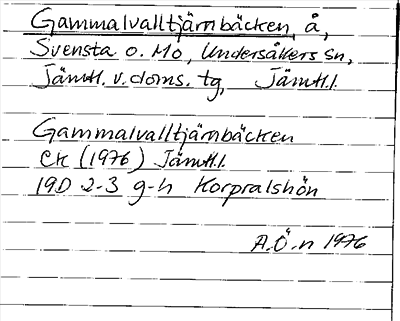 Gammalvalltjärnbäcken, å,
Svensta o. Mo, Undersåkers sn,
Jämtl. v. doms. tg, Jämtl.l.
Gammalvalltjärnbäcken
EK (1976) Jämtl.l.
19D 2-3 g-h Korpralshön
A.Ö-n 1976